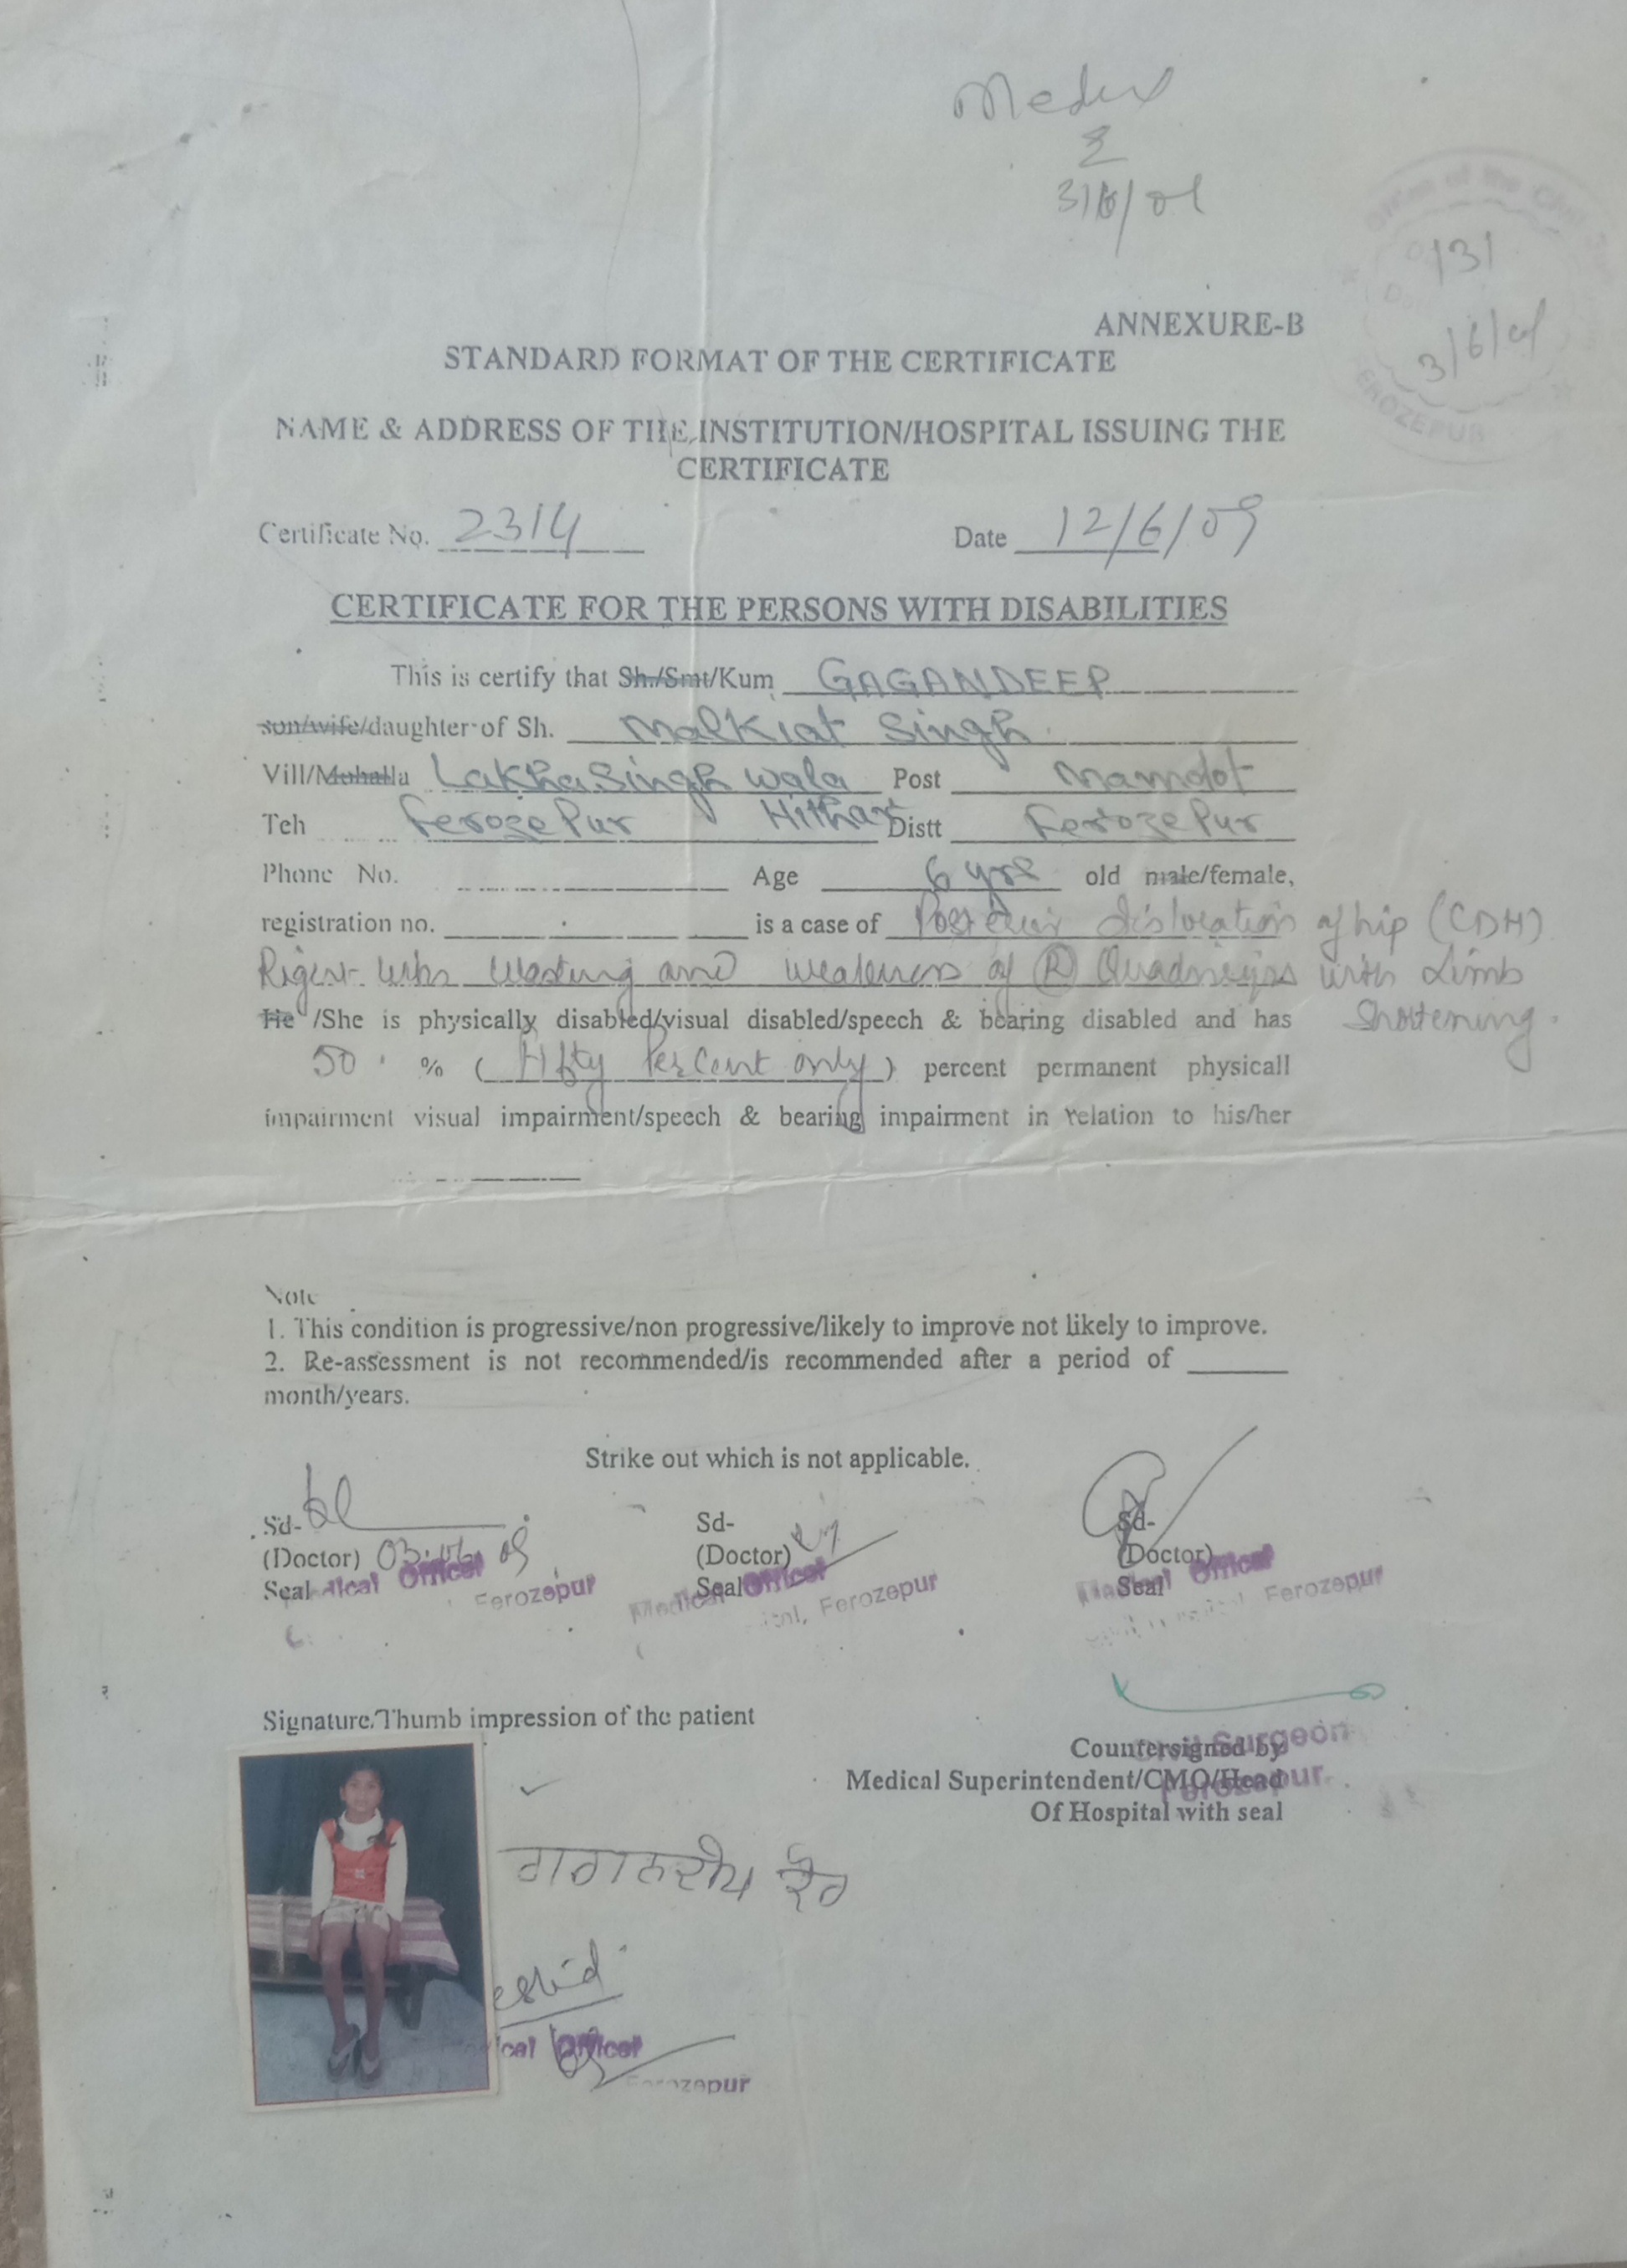 3/6/09
Office of the
131
3/6/09
FEROZEPUR
ANNEXURE-B
STANDARD FORMAT OF THE CERTIFICATE
NAME & ADDRESS OF THE INSTITUTION/HOSPITAL ISSUING THE
CERTIFICATE
Certificate No. 2314 Date 12/6/09
CERTIFICATE FOR THE PERSONS WITH DISABILITIES
This is certify that Sh./Smt/Kum GAGANDEEP
son/wife/daughter of Sh. Malkiat Singh
Vill/Mohalla Lakha Singh wala Post Mamdot
Hithar
Teh Ferozepur Distt Ferozepur
Phone No. Age 6 yrs old male/female,
registration no. is a case of Posterior dislocation of hip (CDH)
Right with wasting and weakness of (R) Quadriceps with Limb
Shortening.
He /She is physically disabled/visual disabled/speech & bearing disabled and has
50 % (Fifty Percent only) percent permanent physicall
impairment visual impairment/speech & bearing impairment in relation to his/her
Note
1. This condition is progressive/non progressive/likely to improve not likely to improve.
2. Re-assessment is not recommended/is recommended after a period of
month/years.
Strike out which is not applicable.
Sd- Sd- Sd-
(Doctor) 03.06.09 (Doctor) (Doctor)
Seal Seal Seal
Medical Officer Medical Officer Medical Officer
Ferozepur Ferozepur Ferozepur
Signature/Thumb impression of the patient
Civil Surgeon
Ferozepur
Countersigned by
Medical Superintendent/CMO/Head
Of Hospital with seal
ਗਗਨਦੀਪ ਕੌਰ
Officer
Ferozepur